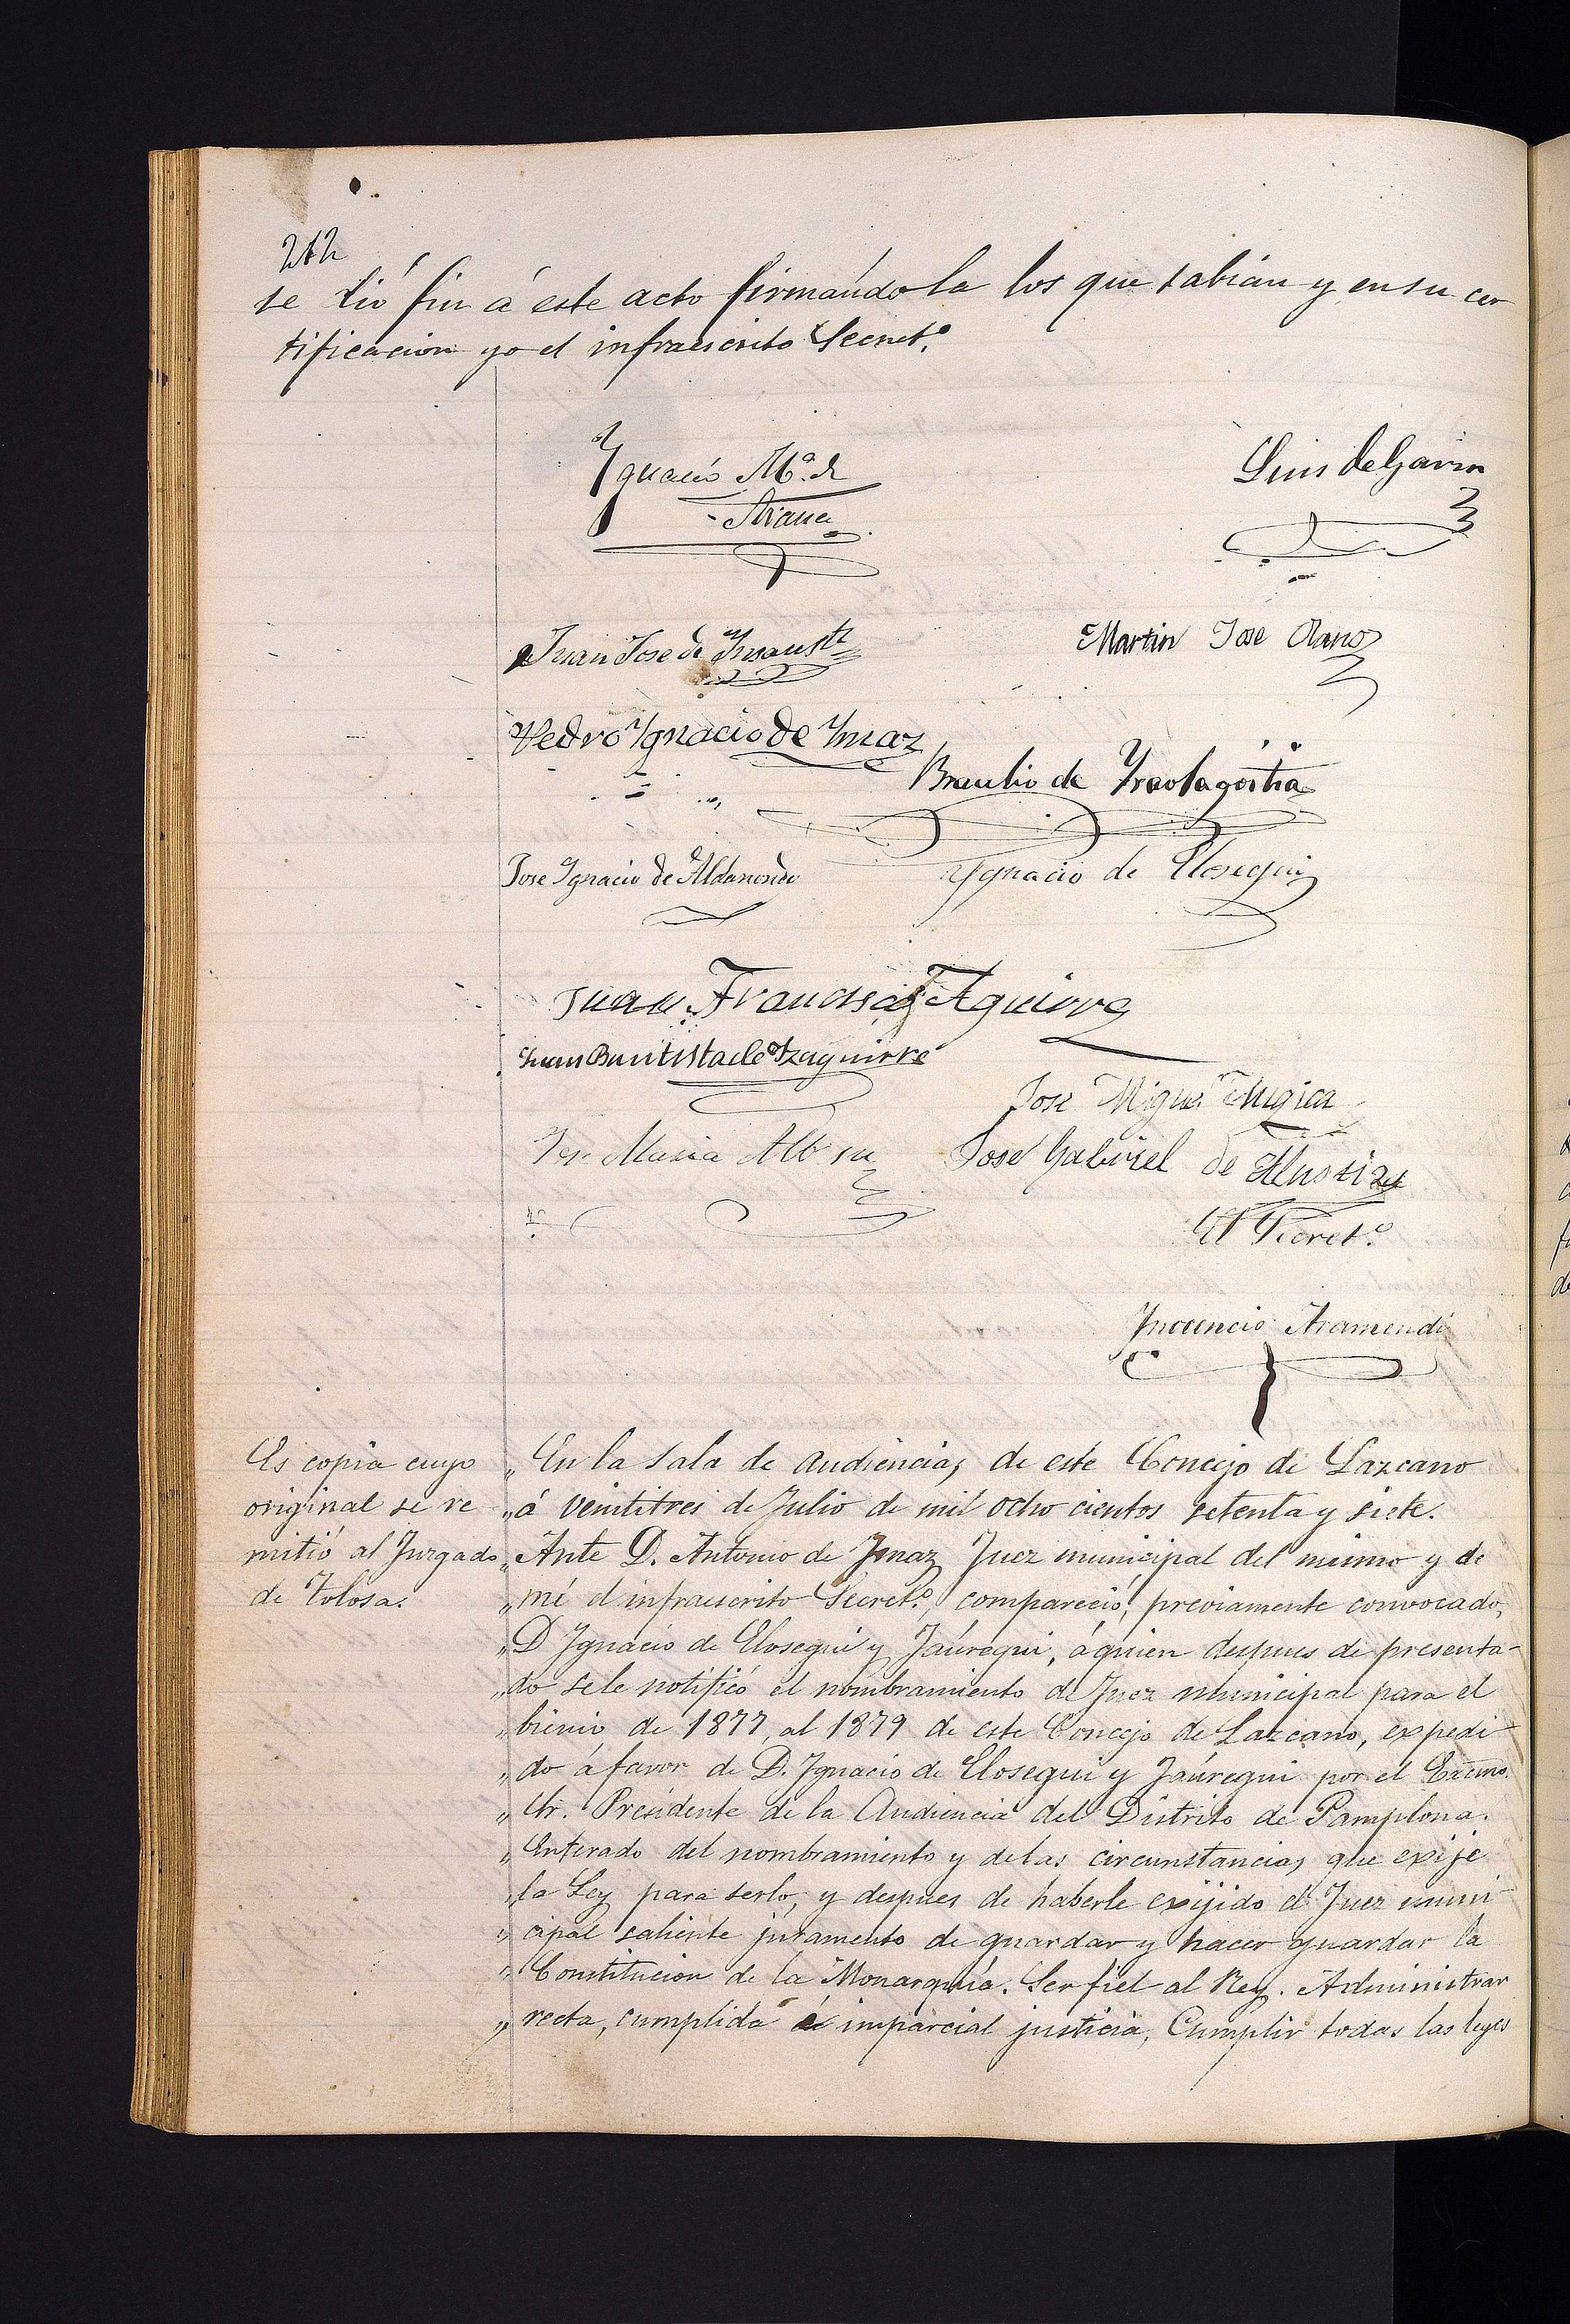 212
se dió fin á este acto firmándola los que sabían y en su cer
tificacion yo el infraescrito Secret.º
Ygnacio M.ª de
Arana
Luis de Garin
Juan Jose de Ynsausti
Martin Jose Olano
Pedro Ygnacio de Ymaz
Braulio de Yraolagoitia
Jose Ygnacio de Aldanondo
Ygnacio de Elosegui
Juan Francisco Aguirre
Juan Bautista de Yzaguirre
Jose Miguel Mugica
Jose Maria
Jose Gabriel de Alustiza
El Secret.º
Ynocencio Aramendi
Es copia cuyo
original se re
mitió al Juzgado
de Tolosa.
„ En la Sala de audiencias de este Concejo de Lazcano
„ á veintitres de Julio de mil ocho cientos setenta y siete.
„ Ante D. Antonio de Ymaz Juez municipal del mismo y de
„ mí el infraescrito Secret.º, compareció, previamente convocado,
„ D Ygnacio de Elosegui y Jáuregui, á quien despues de presenta-
„ do se le notificó el nombramiento de Juez municipal para el
„ bienio de 1877, al 1879 de este Concejo de Lazcano, expedi-
„ do á favor de D. Ygnacio de Elosegui y Jáuregui por el Excmo.
„ Sr. Presidente de la Audiencia del Distrito de Pamplona.
„ Enterado del nombramiento y de las circunstancias que exije
„ la Ley para serlo, y despues de haberle exijido el Juez muni-
„ cipal saliente juramento de guardar y hacer guardar la
„ Constitucion de la Monarquía. Ser fiel al Rey. Administrar
„ recta, cumplida é imparcial justicia, Cumplir todas las leyes